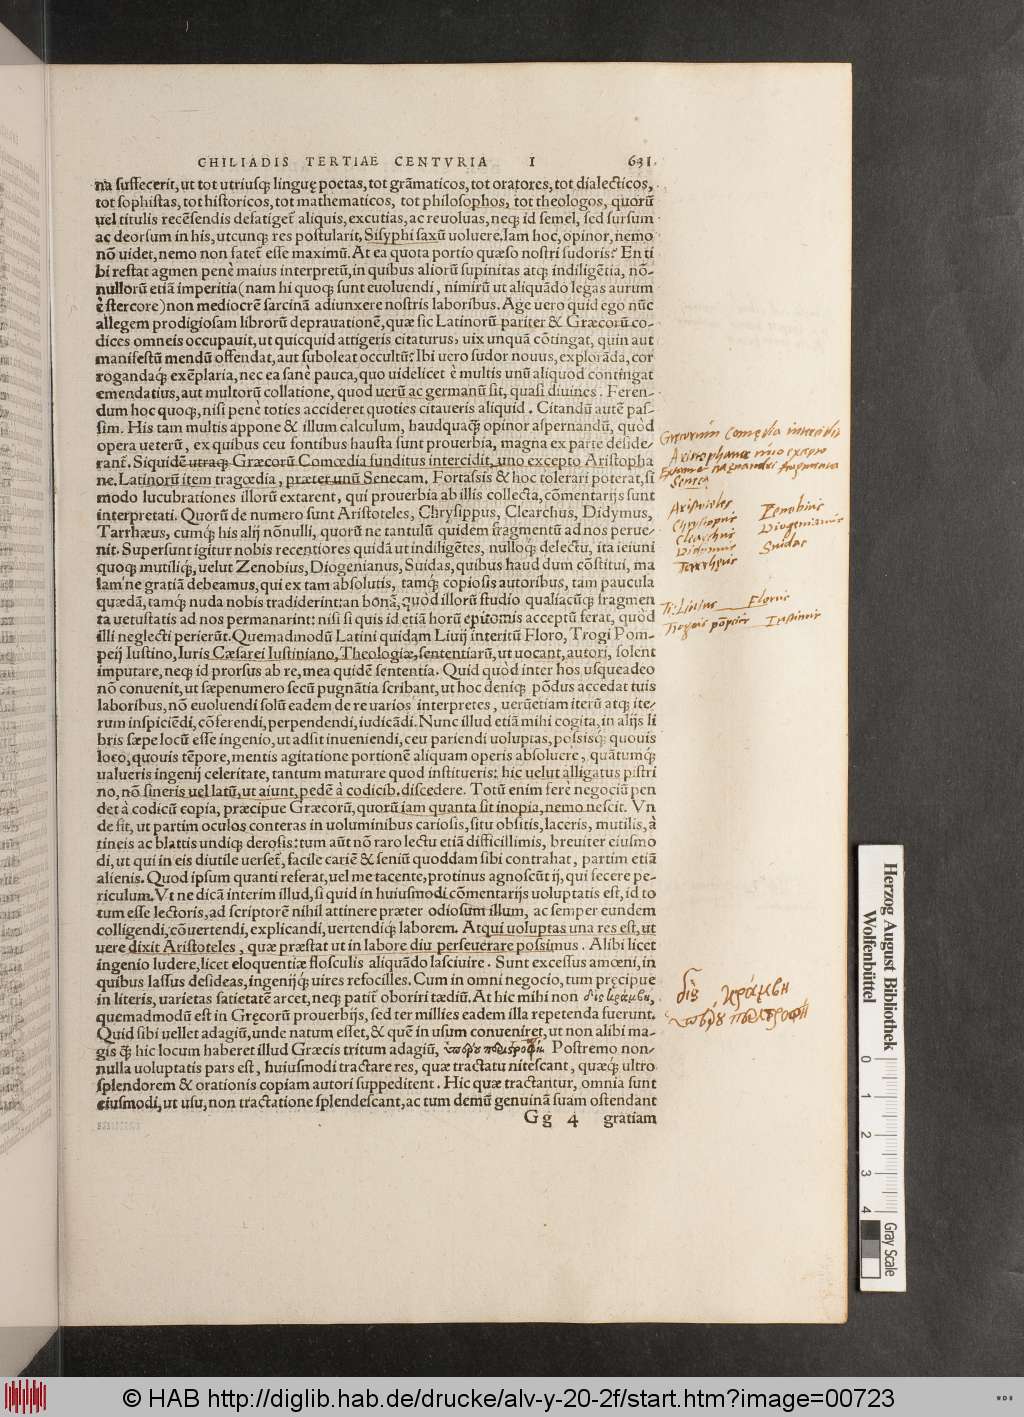 CHILIADIS TERTIAE CENTVRIA I 631.
na suffecerit, ut tot utriusq; linguę poetas, tot grãmaticos, tot oratores, tot dialecticos,
tot sophistas, tot historicos, tot mathematicos, tot philosophos, tot theologos, quorũ
uel titulis recẽsendis defatiget᷑ aliquis, excutias, ac reuoluas, neq; id semel, sed sursum
ac deorsum in his, utcunq; res postularit, Sisyphi saxũ uoluere. Iam hoc, opinor, nemo
nõ uidet, nemo non fatet᷑ esse maximũ. At ea quota portio quæso nostri sudoris? En ti
bi restat agmen penè maius interpretũ, in quibus aliorũ supinitas atq; indiligẽtia, nõ-
nullorũ etiã imperitia (nam hi quoq; sunt euoluendi, nimirũ ut aliquãdo legas aurum
è stercore) non mediocrẽ sarcinã adiunxere nostris laboribus. Age uero quid ego nũc
allegem prodigiosam librorũ deprauationẽ, quæ sic Latinorũ pariter & Græcorũ co-
dices omneis occupauit, ut quicquid attigeris citaturus, uix unquã cõtingat, quin aut
manifestũ mendũ offendat, aut suboleat occultũ? Ibi uero sudor nouus, explorãda, cor
rogandaq́; exẽplaria, nec ea sanè pauca, quo uidelicet è multis unũ aliquod contingat
emendatius, aut multorũ collatione, quod uerũ ac germanũ sit, quasi diuines. Feren-
dum hoc quoq;, nisi penè toties accideret quoties citaueris aliquid. Citandũ autẽ pas-
sim. His tam multis appone & illum calculum, haudquaq́; opinor aspernandũ, quòd
opera ueterũ, ex quibus ceu fontibus hausta sunt prouerbia, magna ex parte deside-
rant᷑. Siquidẽ utraq; Græcorũ Comœdia funditus intercidit, uno excepto Aristopha
ne. Latinorũ item tragœdia, præter unũ Senecam. Fortassis & hoc tolerari poterat, si
modo lucubrationes illorũ extarent, qui prouerbia ab illis collecta, cõmentarijs sunt
interpretati. Quorũ de numero sunt Aristoteles, Chrysippus, Clearchus, Didymus,
Tarrhæus, cumq́; his alij nõnulli, quorũ ne tantulũ quidem fragmentũ ad nos perue-
nit. Supersunt igitur nobis recentiores quidã ut indiligẽtes, nulloq́; delectu, ita ieiuni
quoq; mutiliq́;, uelut Zenobius, Diogenianus, Suidas, quibus haud dum cõstitui, ma
lam ne gratiã debeamus, qui ex tam absolutis, tamq́; copiosis autoribus, tam paucula
quædã, tamq́; nuda nobis tradiderint: an bonã, quòd illorũ studio qualiacũq; fragmen
ta uetustatis ad nos permanarint: nisi si quis id etiã horũ epitomis acceptũ ferat, quòd
illi neglecti perierũt. Quemadmodũ Latini quidam Liuij interitũ Floro, Trogi Pom-
peij Iustino, Iuris Cæsarei Iustiniano, Theologiæ, sententiarũ, ut uocant, autori, solent
imputare, neq; id prorsus ab re, mea quidẽ sententia. Quid quòd inter hos usqueadeo
nõ conuenit, ut sæpenumero secũ pugnãtia scribant, ut hoc deniq; põdus accedat tuis
laboribus, nõ euoluendi solũ eadem de re uarios interpretes, uerũetiam iterũ atq; ite-
rum inspiciẽdi, cõferendi, perpendendi, iudicãdi. Nunc illud etiã mihi cogita, in alijs li
bris sæpe locũ esse ingenio, ut adsit inueniendi, ceu pariendi uoluptas, possisq́; quouis
loco, quouis tẽpore, mentis agitatione portionẽ aliquam operis absoluere, quãtumq́;
ualueris ingenij celeritate, tantum maturare quod institueris: hic uelut alligatus pistri
no, nõ sineris uel latũ, ut aiunt, pedẽ à codicib. discedere. Totũ enim ferè negociũ pen
det à codicũ copia, præcipue Græcorũ, quorũ iam quanta sit inopia, nemo nescit. Vn
de fit, ut partim oculos conteras in uoluminibus cariosis, situ obsitis, laceris, mutilis, à
tineis ac blattis undiq; derosis: tum aũt nõ raro lectu etiã difficillimis, breuiter eiusmo
di, ut qui in eis diutile uerset᷑, facile cariẽ & seniũ quoddam sibi contrahat, partim etiã
alienis. Quod ipsum quanti referat, uel me tacente, protinus agnoscũt ij, qui fecere pe-
riculum. Vt ne dicã interim illud, si quid in huiusmodi cõmentarijs uoluptatis est, id to
tum esse lectoris, ad scriptorẽ nihil attinere præter odiosum illum, ac semper eundem
colligendi, cõuertendi, explicandi, uertendiq́; laborem. Atqui uoluptas una res est, ut
uere dixit Aristoteles, quæ præstat ut in labore diu perseuerare possimus. Alibi licet
ingenio ludere, licet eloquentiæ flosculis aliquãdo lasciuire. Sunt excessus amœni, in
quibus lassus desideas, ingenijq́; uires refocilles. Cum in omni negocio, tum pręcipue
in literis, uarietas satietatẽ arcet, neq; patit᷑ oboriri tædiũ. At hic mihi non δὶς κράμβη,
quemadmodũ est in Gręcorũ prouerbijs, sed ter millies eadem illa repetenda fuerunt.
Quid sibi uellet adagiũ, unde natum esset, & quẽ in usum conueniret, ut non alibi ma-
gis q̃; hic locum haberet illud Græcis tritum adagiũ, ὑπέρου περιτροπή. Postremo non-
nulla uoluptatis pars est, huiusmodi tractare res, quæ tractatu nitescant, quæq́; ultro
splendorem & orationis copiam autori suppeditent. Hic quæ tractantur, omnia sunt
eiusmodi, ut usu, non tractatione splendescant, ac tum demũ genuinã suam ostendant
Gg 4 gratiam
Grecorum Comędia intercidit
Aristophane uno excepto
Seneca
Aristoteles
Chrysippus
Clearchus
Didymus
Tarrhęus
Zenobius
Diogenianus
Suidas
Ti: Liuius Florus
Trogus põpeiꝰ Iustinus
δὶς κράμβη
ὑπέρου περιτροπή
Herzog August Bibliothek
Wolfenbüttel
0 1 2 3 4
Gray Scale
© HAB http://diglib.hab.de/drucke/alv-y-20-2f/start.htm?image=00723